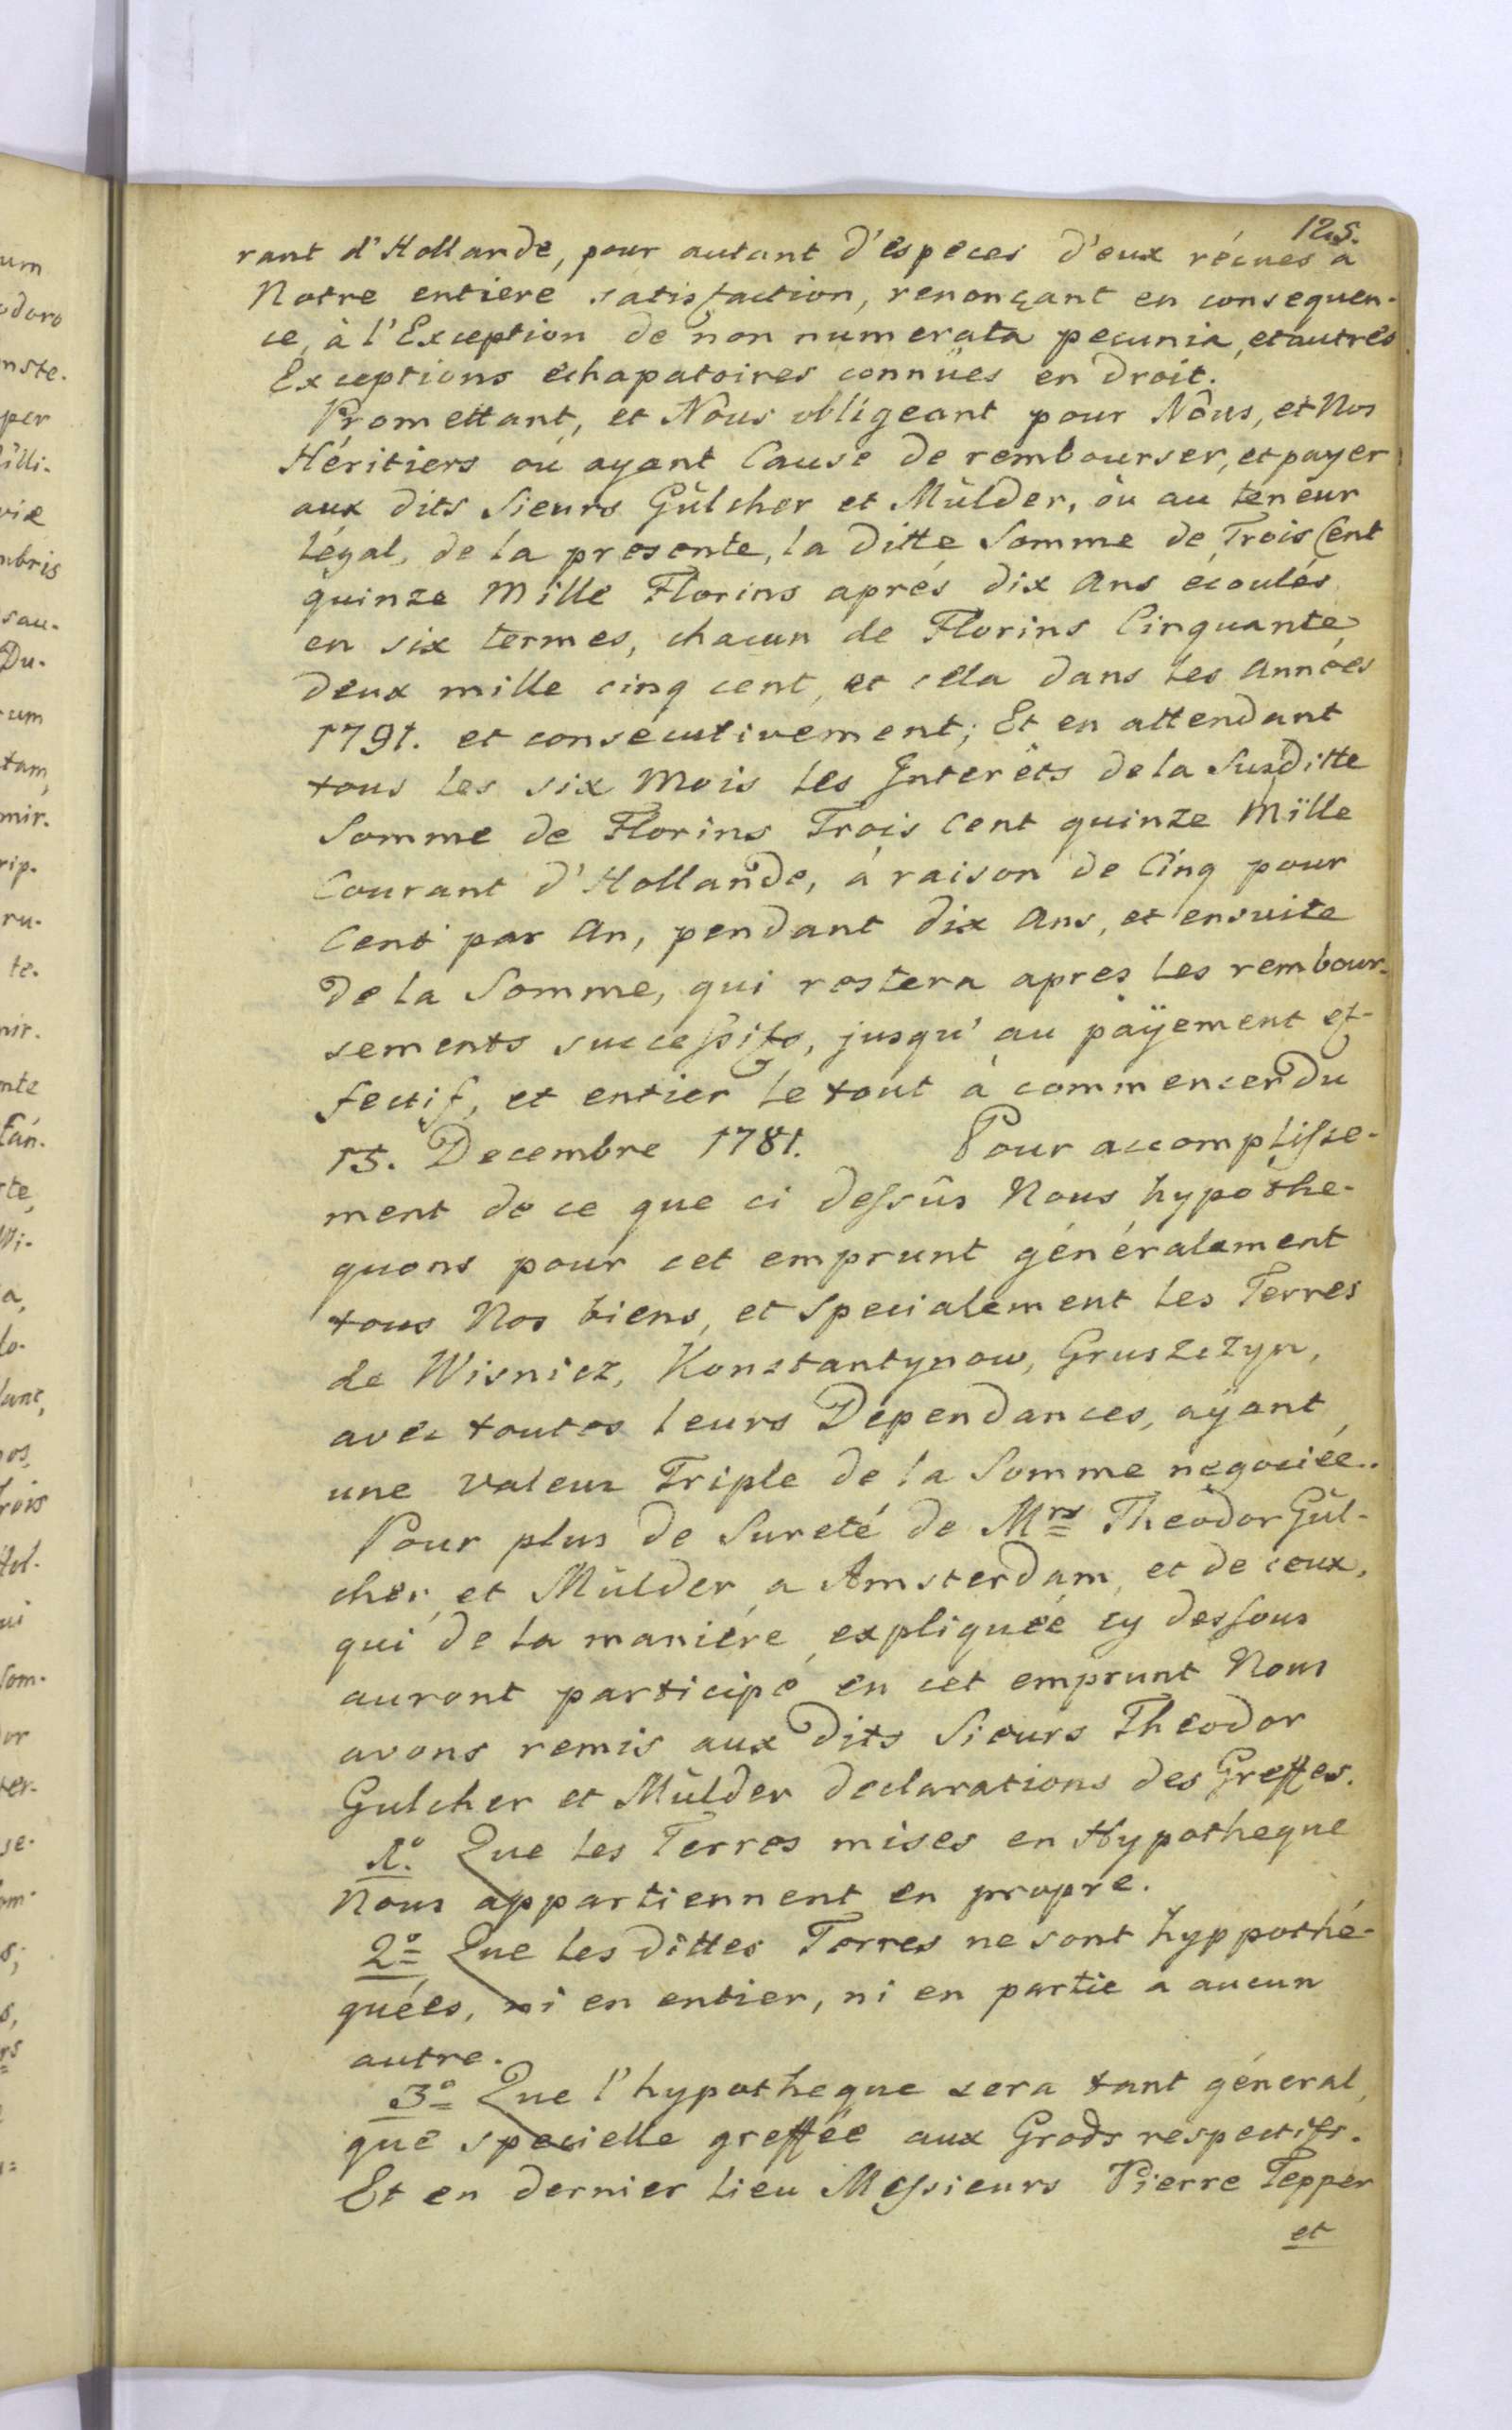 125.
rant d'Hollande, pour autant d'especes d'eux récues a
Notre entiere satisfaction, renonçant en consequen-
ce, à l'Exception de non numerata pecunia, et autres
Exceptions échapatoires connües en droit.
Promettant, et Nôus obligeant pour Nôus, et Nos
Héritiers ou ayant Cause de rembourser, et payer
aux dits Sieurs Gülcher et Mülder, ou au teneur
légal, de la presente, la ditte Somme de Trois Cent
quinze Mille Florins aprés dix Ans écoulés
en six termes, chacun de Florins Cinquante
deux mille cinq cent, et cela dans les Années
1791. et consécutivement; Et en attendant
tous les six Mois les Interêts de la Susditte
Somme de Florins Trois Cent quinze Mille
Courant d'Hollande, à raison de Cinq pour
Cent par An, pendant dix Ans, et ensuite
de la Somme, qui restera apres les rembour-
sements successifs, jusqu' au päyement ef-
fectif, et entier le tout à commencer du
15. Decembre 1781. Pour accomplisse-
ment de ce que ci dessûs Nous hypothe-
quons pour cet emprunt généralement
tous Nos biens, et specialement les Terres
de Wisnicz, Konstantynow, Gruszczyn,
avec toutes leurs Dépendances, aÿant
une valeur Triple de la Somme negociée.
Pour plus de Sureté de Mrs Theodor Gül-
cher et Mülder a Amsterdam, et de ceux,
qui de la maniére expliquée cy dessous
auront participé en cet emprunt Nous
avons remis aux dits Sieurs Theodor
Gulcher et Mülder declarations des Greffes.
1º. Que les Terres mises en Hypotheque
Nous appartiennent en propre.
2º Que les dittes Terres ne sont hyppothé-
quées, ni en entier, ni en partie a aucun
autre.
3º Que l'hypotheque sera tant géneral,
que specielle greffée aux Grods respectifs.
Et en dernier lieu Messieurs Pierre Tepper
et